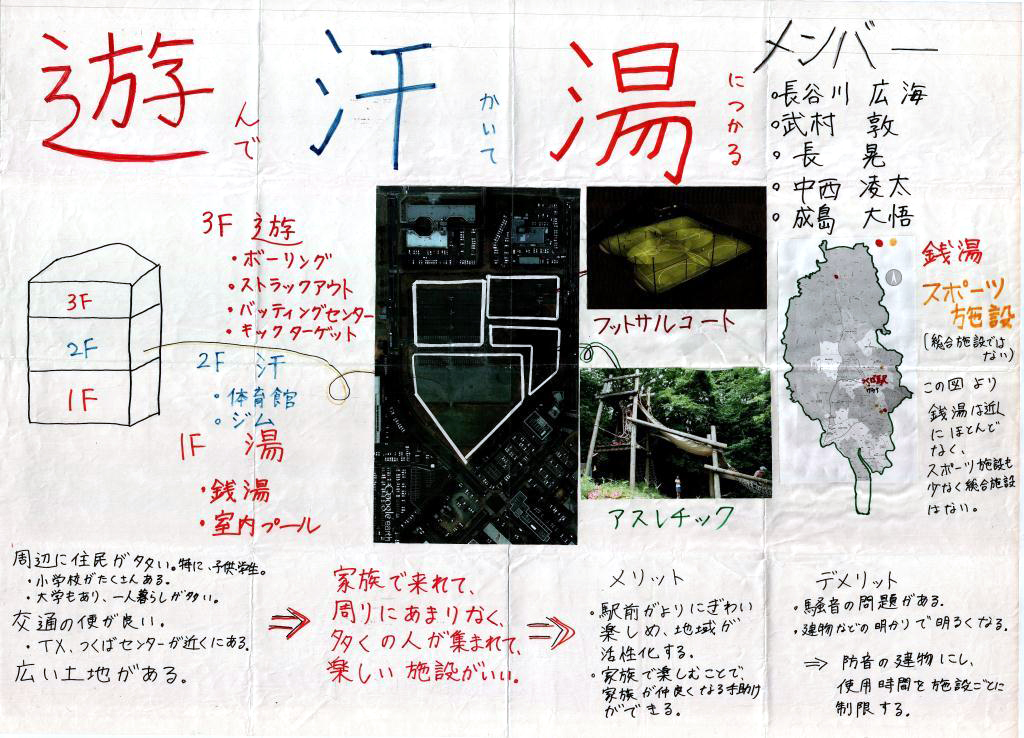 遊んで 汗かいて 湯につかる
メンバー
・長谷川 広海
・武村 敦
・長 晃
・中西 凌太
・成島 大悟
3F
2F
1F
3F 遊
・ボーリング
・ストラックアウト
・バッティングセンター
・キックターゲット
2F 汗
・体育館
・ジム
1F 湯
・銭湯
・室内プール
フットサルコート
アスレチック
銭湯
スポーツ
施設
(総合施設では
ない)
この図より
銭湯は近く
にほとんど
なく、
スポーツ施設も
少なく総合施設
はない。
周辺に住民が多い。特に、子供学生。
・小学校がたくさんある。
・大学もあり、一人暮らしが多い。
交通の便が良い。
・TX、つくばセンターが近くにある。
広い土地がある。
⇒
家族で来れて、
周りにあまりなく、
多くの人が集まれて、
楽しい施設がいい。
⇒
メリット
・駅前がよりにぎわい
楽しめ、地域が
活性化する。
・家族で楽しむことで、
家族が仲良くなる手助け
ができる。
デメリット
・騒音の問題がある。
・建物などの明かりで明るくなる。
⇒ 防音の建物にし、
使用時間を施設ごとに
制限する。